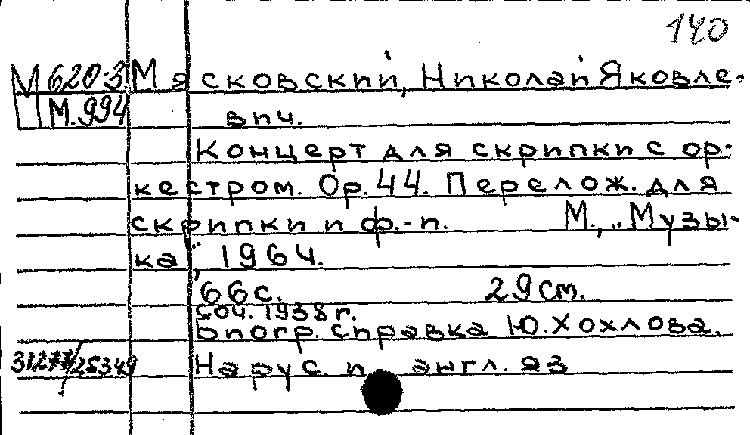 140
М620.3 Мясковский, Николай Яковле-
М.994 вич.
Концерт для скрипки с ор-
кестром. Ор.44. Перелож. для
скрипки и ф.-п. М., „Музы-
ка", 1964.
66с. 29см.
Соч. 1938г.
Биогр. справка Ю.Хохлова.
На рус. и англ. яз